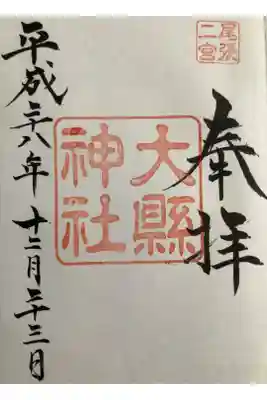 尾張
二宮
奉拝
大縣
神社
平成二十八年 十二月二十三日